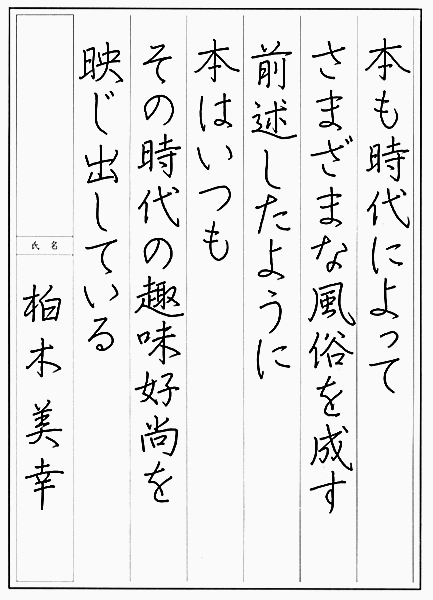 本も時代によって
さまざまな風俗を成す
前述したように
本はいつも
その時代の趣味好尚を
映じ出している
氏名
柏木美幸